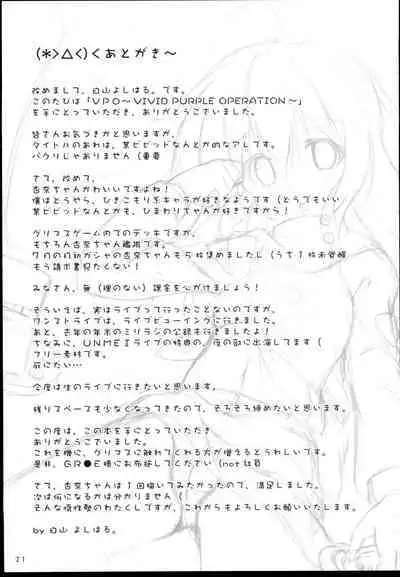 (*>△<)<あとがき〜
改めまして、白山よしはる。です。
このたびは「VPO〜VIVID PURPLE OPERATION〜」
を手にとっていただき、ありがとうございました。
皆さんお気づきかと思いますが、
タイトルのあれは、某ビビッドなんとか的なアレです。
パクリじゃありません(重要
さて、改めて。
杏奈ちゃんかわいいですよね!
僕はとうやら、ひきこもり系キャラが好きなようです(とうでもいい
某ビビッドなんとかも、ひまわりちゃんが好きですから!
グリマスゲーム内でのデッキですが、
もちろん杏奈ちゃん編成です。
7月の月初ガシャの杏奈ちゃんも5枚集めましたし(うち1枚未覚醒
もう請求書見たくない!
みなさん、無(理のない)課金を心がけましょう!
そういえば、実はライブって行ったことないのですが、
ファーストライブは、ライブビューイングに行きました。
あと、去年の年末のミリラジの公録も行きましたよ!
ちなみに、UNMEIライブの特典の、夜の部に出演してます(
フリー素材です。
死にたい…
今度は生のライブに行きたいと思います。
残りスペースも少なくなってきたので、そろそろ締めたいと思います。
この度は、この本を手にとっていただき
ありがとうございました。
これを機に、グリマスに触れてくれる方が増えるとうれしいです。
是非、GR●E様にお布施してください(not社員
さて、杏奈ちゃんは1回描いてみたかったので、満足しました。
次は何になるかは分かりません(
そんな慢性塾のわたくしですが、これからもよろしくお願いいたします。
by 白山よしはる。
21